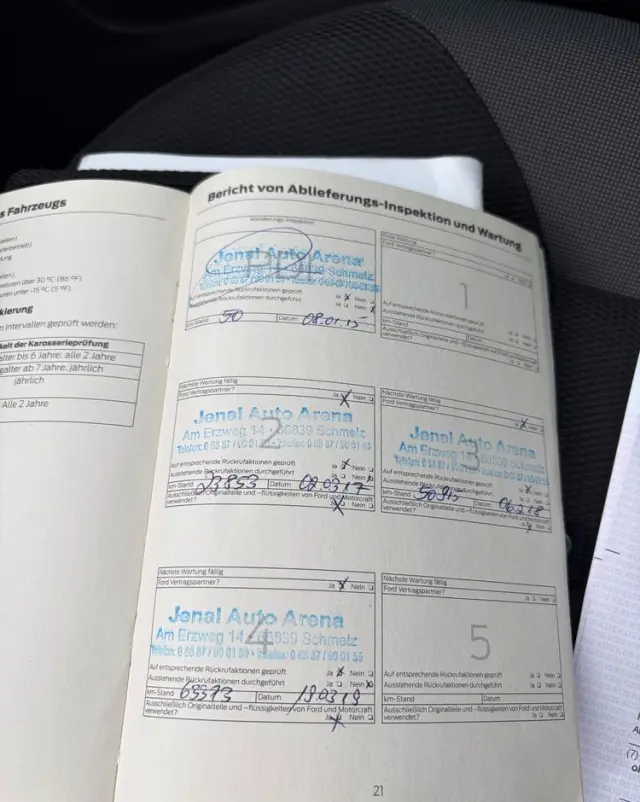 s Fahrzeugs
über 30 °C (86 °F).
unter -15 °C (5 °F).
kierung
n Intervallen geprüft werden:
keit der Karosserieprüfung
alter bis 6 Jahre: alle 2 Jahre
galter ab 7 Jahre: jährlich
jährlich
Alle 2 Jahre
Bericht von Ablieferungs-Inspektion und Wartung
Ablieferungs-Inspektion
Jenal Auto Arena
Am Erzweg 14 66839 Schmelz
Auf entsprechende Rückrufaktionen geprüft Ja Nein
Ausstehende Rückrufaktionen durchgeführt Ja Nein
km-Stand 50 Datum 08.01.15
Erste Wartung
Ford Vertragspartner? Ja Nein
1
Auf entsprechende Rückrufaktionen geprüft Ja Nein
Ausstehende Rückrufaktionen durchgeführt Ja Nein
km-Stand Datum
Ausschließlich Originalteile und -flüssigkeiten von Ford und Motorcraft
verwendet? Ja Nein
Nächste Wartung fällig
Ford Vertragspartner? Ja Nein
2
Jenal Auto Arena
Am Erzweg 14 · 66839 Schmelz
Auf entsprechende Rückrufaktionen geprüft Ja Nein
Ausstehende Rückrufaktionen durchgeführt Ja Nein
km-Stand 23853 Datum
Ausschließlich Originalteile und -flüssigkeiten von Ford und Motorcraft
verwendet? Ja Nein
Nächste Wartung fällig
Ford Vertragspartner? Ja Nein
3
Jenal Auto Arena
Am Erzweg 14 · 66839 Schmelz
Auf entsprechende Rückrufaktionen geprüft Ja Nein
Ausstehende Rückrufaktionen durchgeführt Ja Nein
km-Stand Datum
Ausschließlich Originalteile und -flüssigkeiten von Ford und Motorcraft
verwendet? Ja Nein
Nächste Wartung fällig
Ford Vertragspartner? Ja Nein
4
Jenal Auto Arena
Am Erzweg 14 · 66839 Schmelz
Auf entsprechende Rückrufaktionen geprüft Ja Nein
Ausstehende Rückrufaktionen durchgeführt Ja Nein
km-Stand Datum 19.03.19
Ausschließlich Originalteile und -flüssigkeiten von Ford und Motorcraft
verwendet? Ja Nein
Nächste Wartung fällig
Ford Vertragspartner? Ja Nein
5
Auf entsprechende Rückrufaktionen geprüft Ja Nein
Ausstehende Rückrufaktionen durchgeführt Ja Nein
km-Stand Datum
Ausschließlich Originalteile und -flüssigkeiten von Ford und Motorcraft
verwendet? Ja Nein
21
(7)